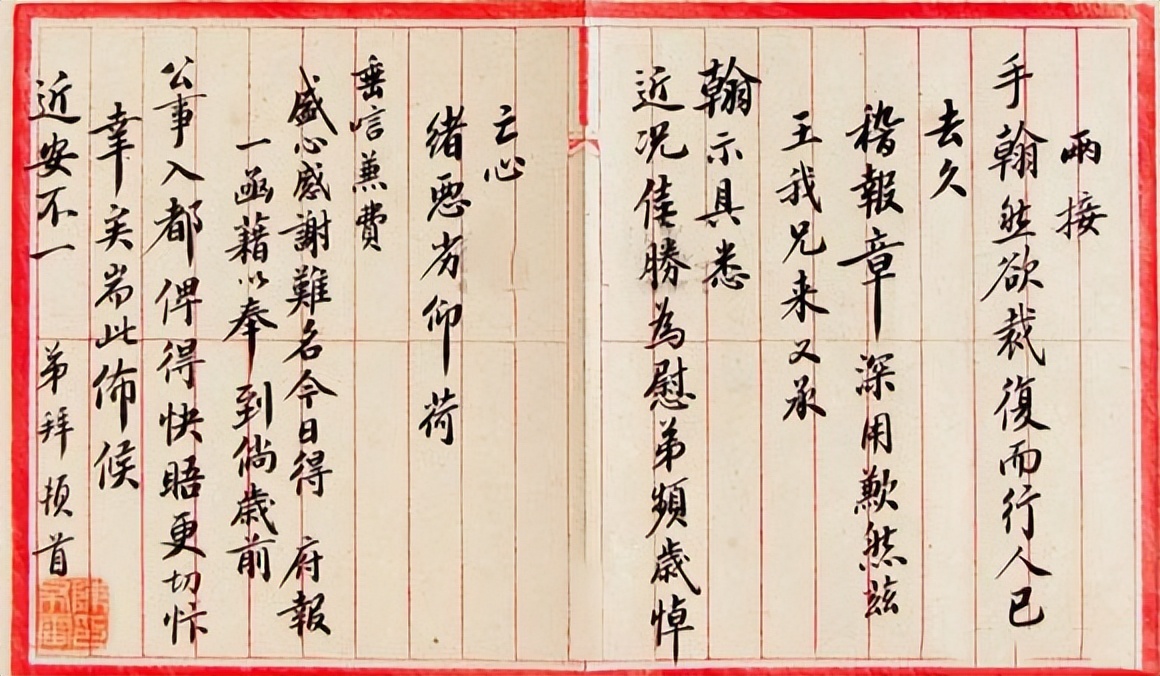 兩接
手翰然欲裁復而行人已
去久
稽報章深用歉然茲
王我兄来又承
翰示具悉
近况佳勝為慰弟頻歲悼
亡心
緒惡劣仰荷
垂唁兼費
盛心感謝難名今日得 府報
一函藉以奉 到倘歲前
公事入都俾得快晤更切忭
幸矣耑此佈候
近安不一 弟拜頓首